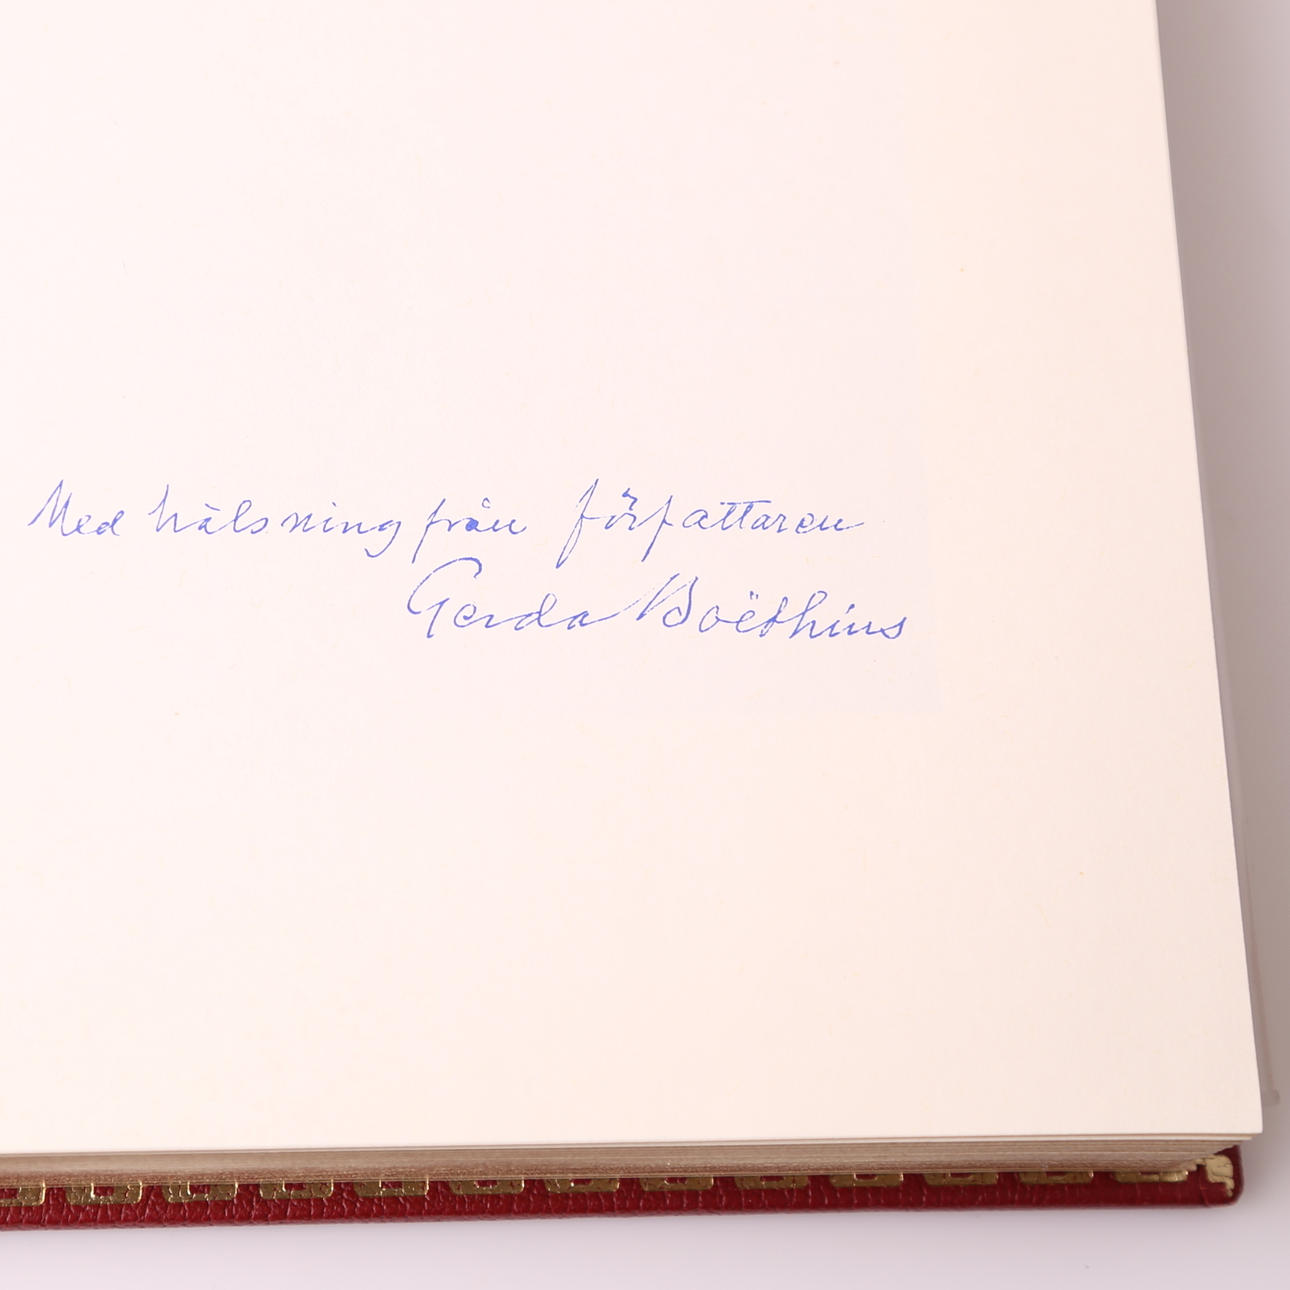 Med hälsning från författaren
Gerda Boëthius